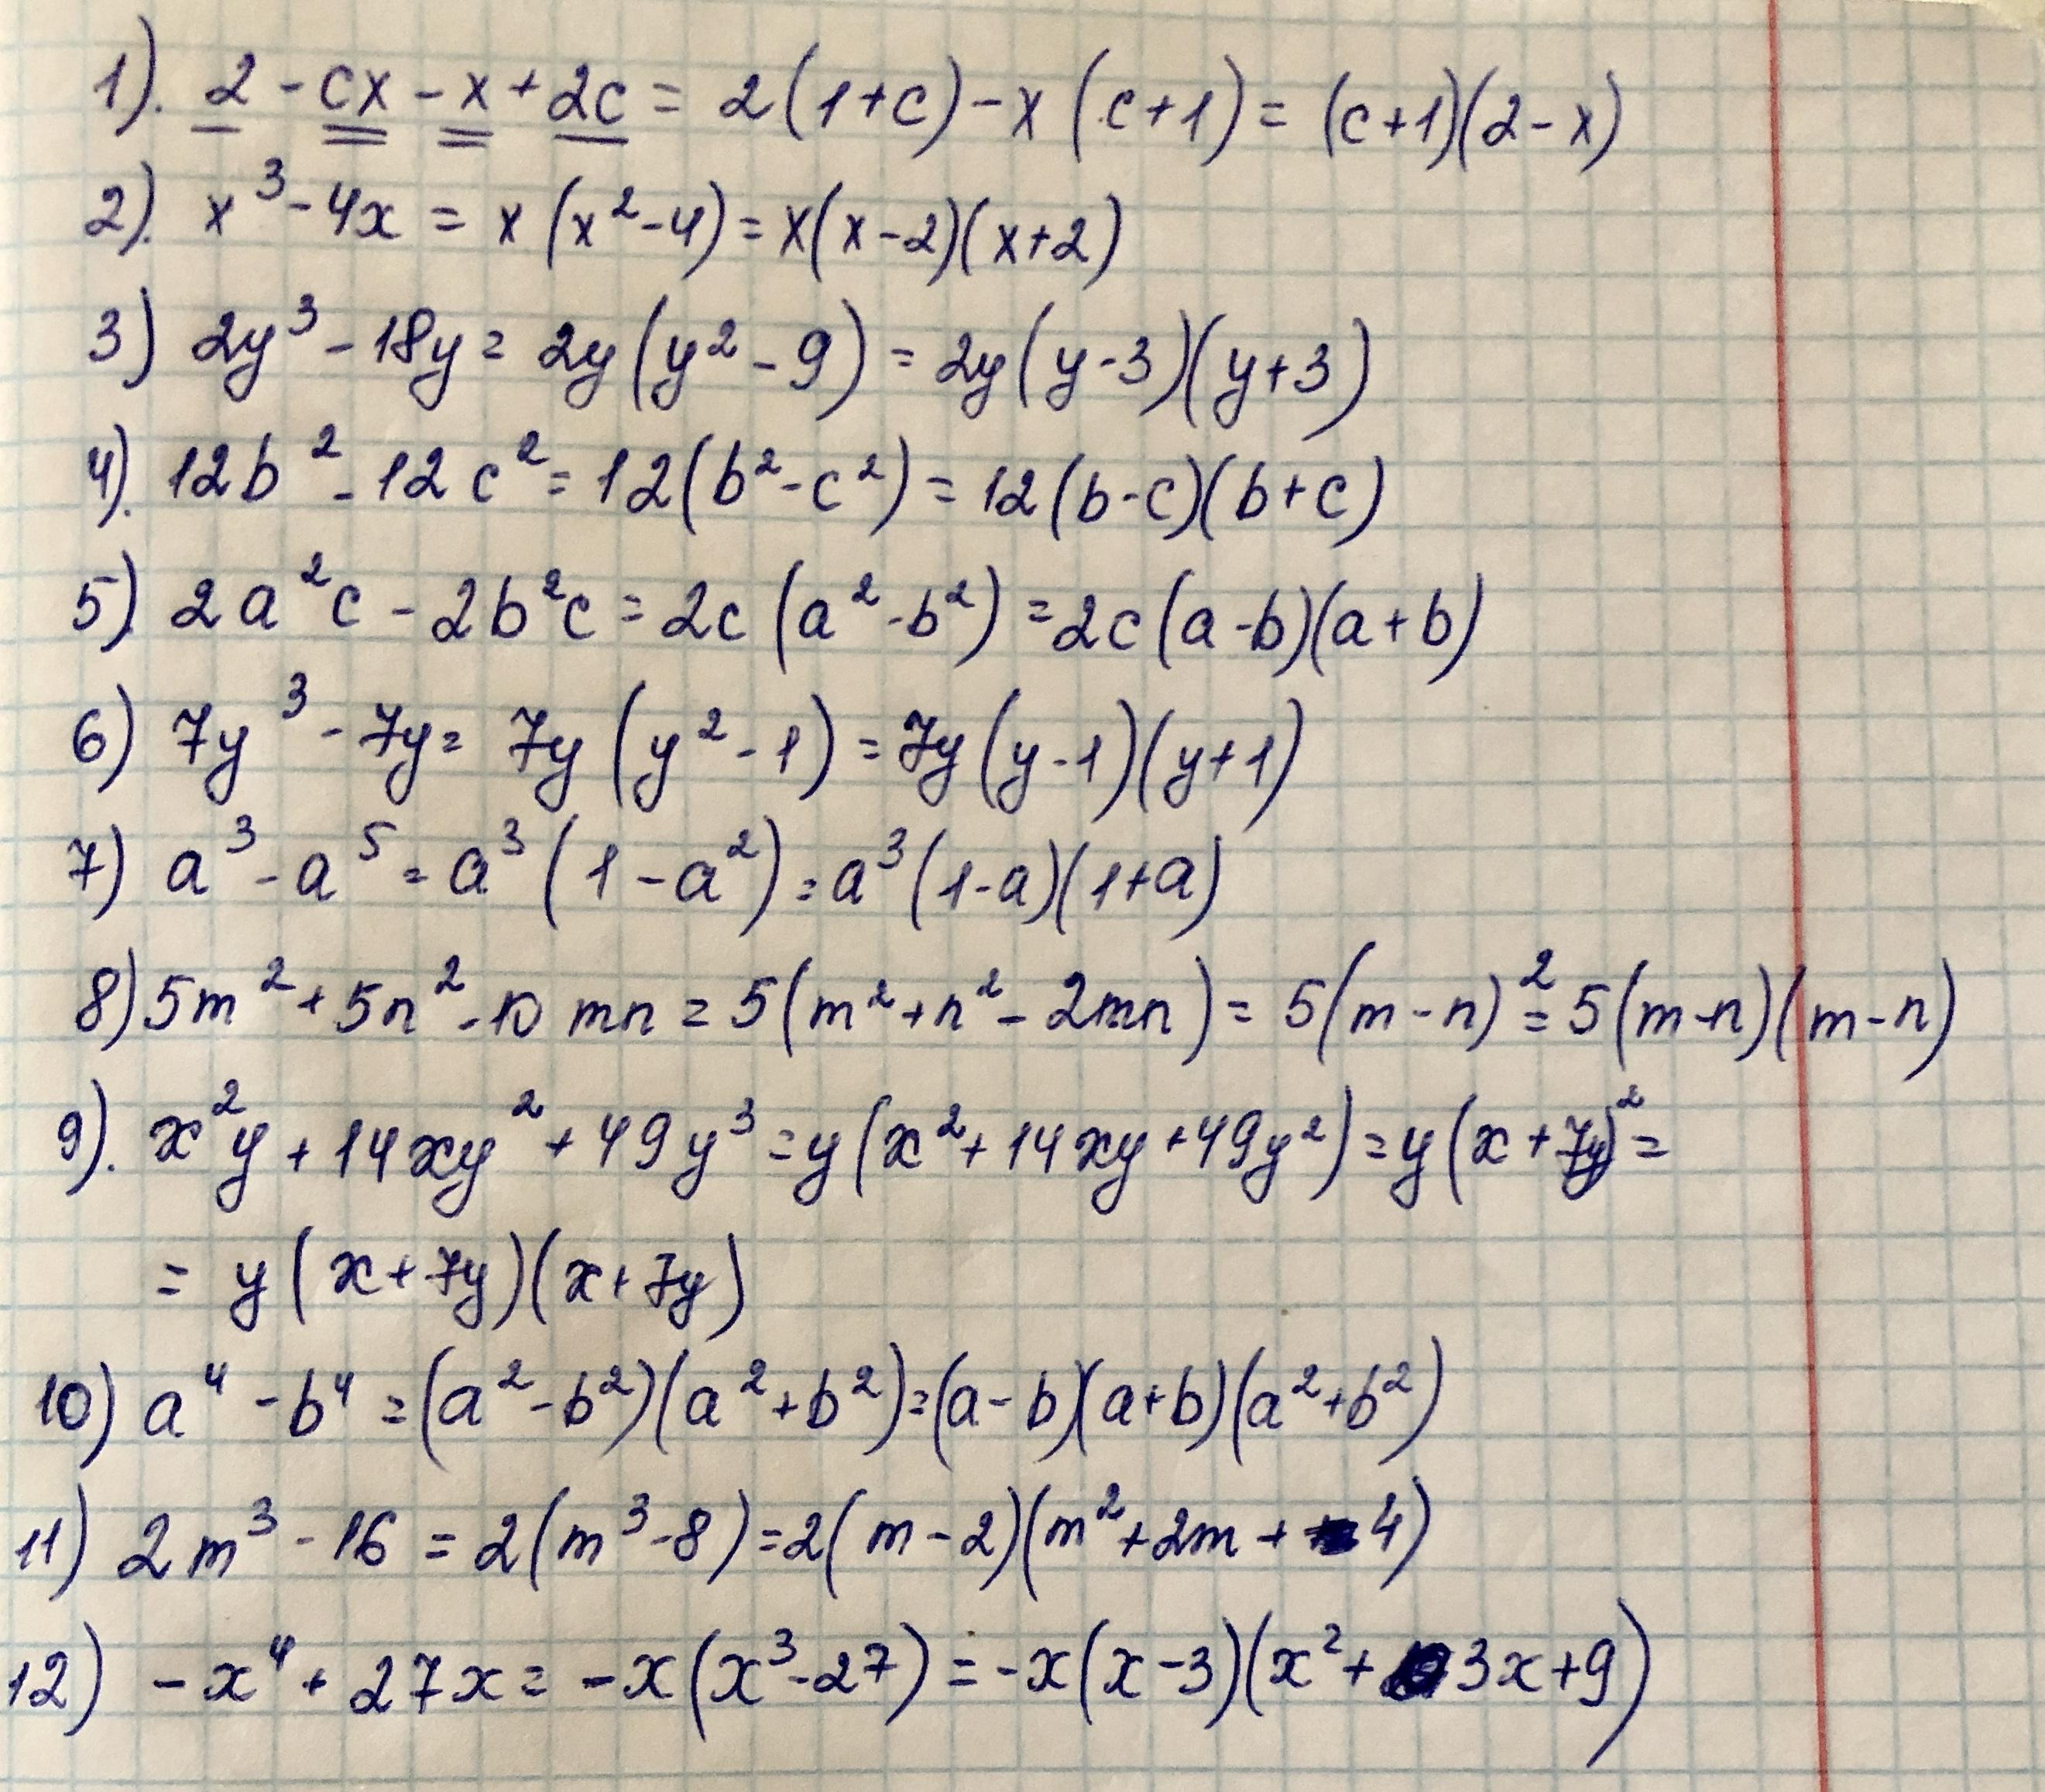 1). 2 - cx - x + 2c = 2(1+c) - x(c+1) = (c+1)(2-x)
2). x³ - 4x = x(x² - 4) = x(x-2)(x+2)
3) 2y³ - 18y = 2y(y² - 9) = 2y(y-3)(y+3)
4). 12b² - 12c² = 12(b² - c²) = 12(b-c)(b+c)
5). 2a²c - 2b²c = 2c(a² - b²) = 2c(a-b)(a+b)
6) 7y³ - 7y = 7y(y² - 1) = 7y(y-1)(y+1)
7) a³ - a⁵ = a³(1 - a²) = a³(1-a)(1+a)
8) 5m² + 5n² - 10mn = 5(m² + n² - 2mn) = 5(m-n)² = 5(m-n)(m-n)
9). x²y + 14xy² + 49y³ = y(x² + 14xy + 49y²) = y(x + 7y)² =
= y(x+7y)(x+7y)
10) a⁴ - b⁴ = (a² - b²)(a² + b²) = (a-b)(a+b)(a² + b²)
11) 2m³ - 16 = 2(m³ - 8) = 2(m-2)(m² + 2m + 4)
12) -x⁴ + 27x = -x(x³ - 27) = -x(x-3)(x² + 3x + 9)